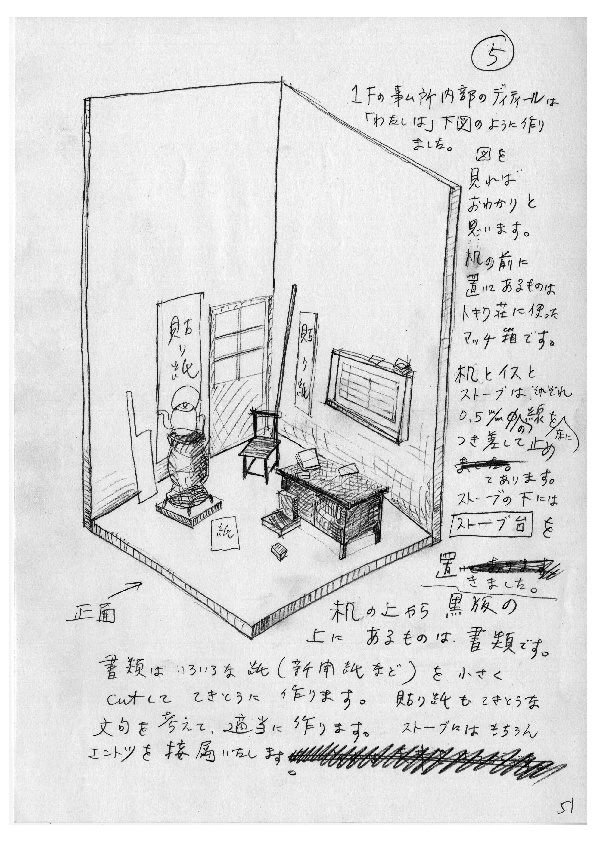 5
1Fの事ム所内部のディティールは
「わたしは」下図のように作り
ました。
図を
見れば
おわかりと
思います。
机の前に
置いてあるものは
トキワ荘に使った
マッチ箱です。
机とイスと
ストーブは、それぞれ
0.5㎜の線を
足に
つき差して止め
てあります。
ストーブの下には
ストーブ台を
置
きました。
貼り紙
貼り紙
紙
正面
机の上から黒板の
上にあるものは、書類です。
書類はいろいろな紙(新聞紙など)を小さく
cutして てきとうに作ります。 貼り紙もてきとうな
文句を考えて、適当に作ります。 ストーブにはもちろん
エントツを接属いたします
。
51